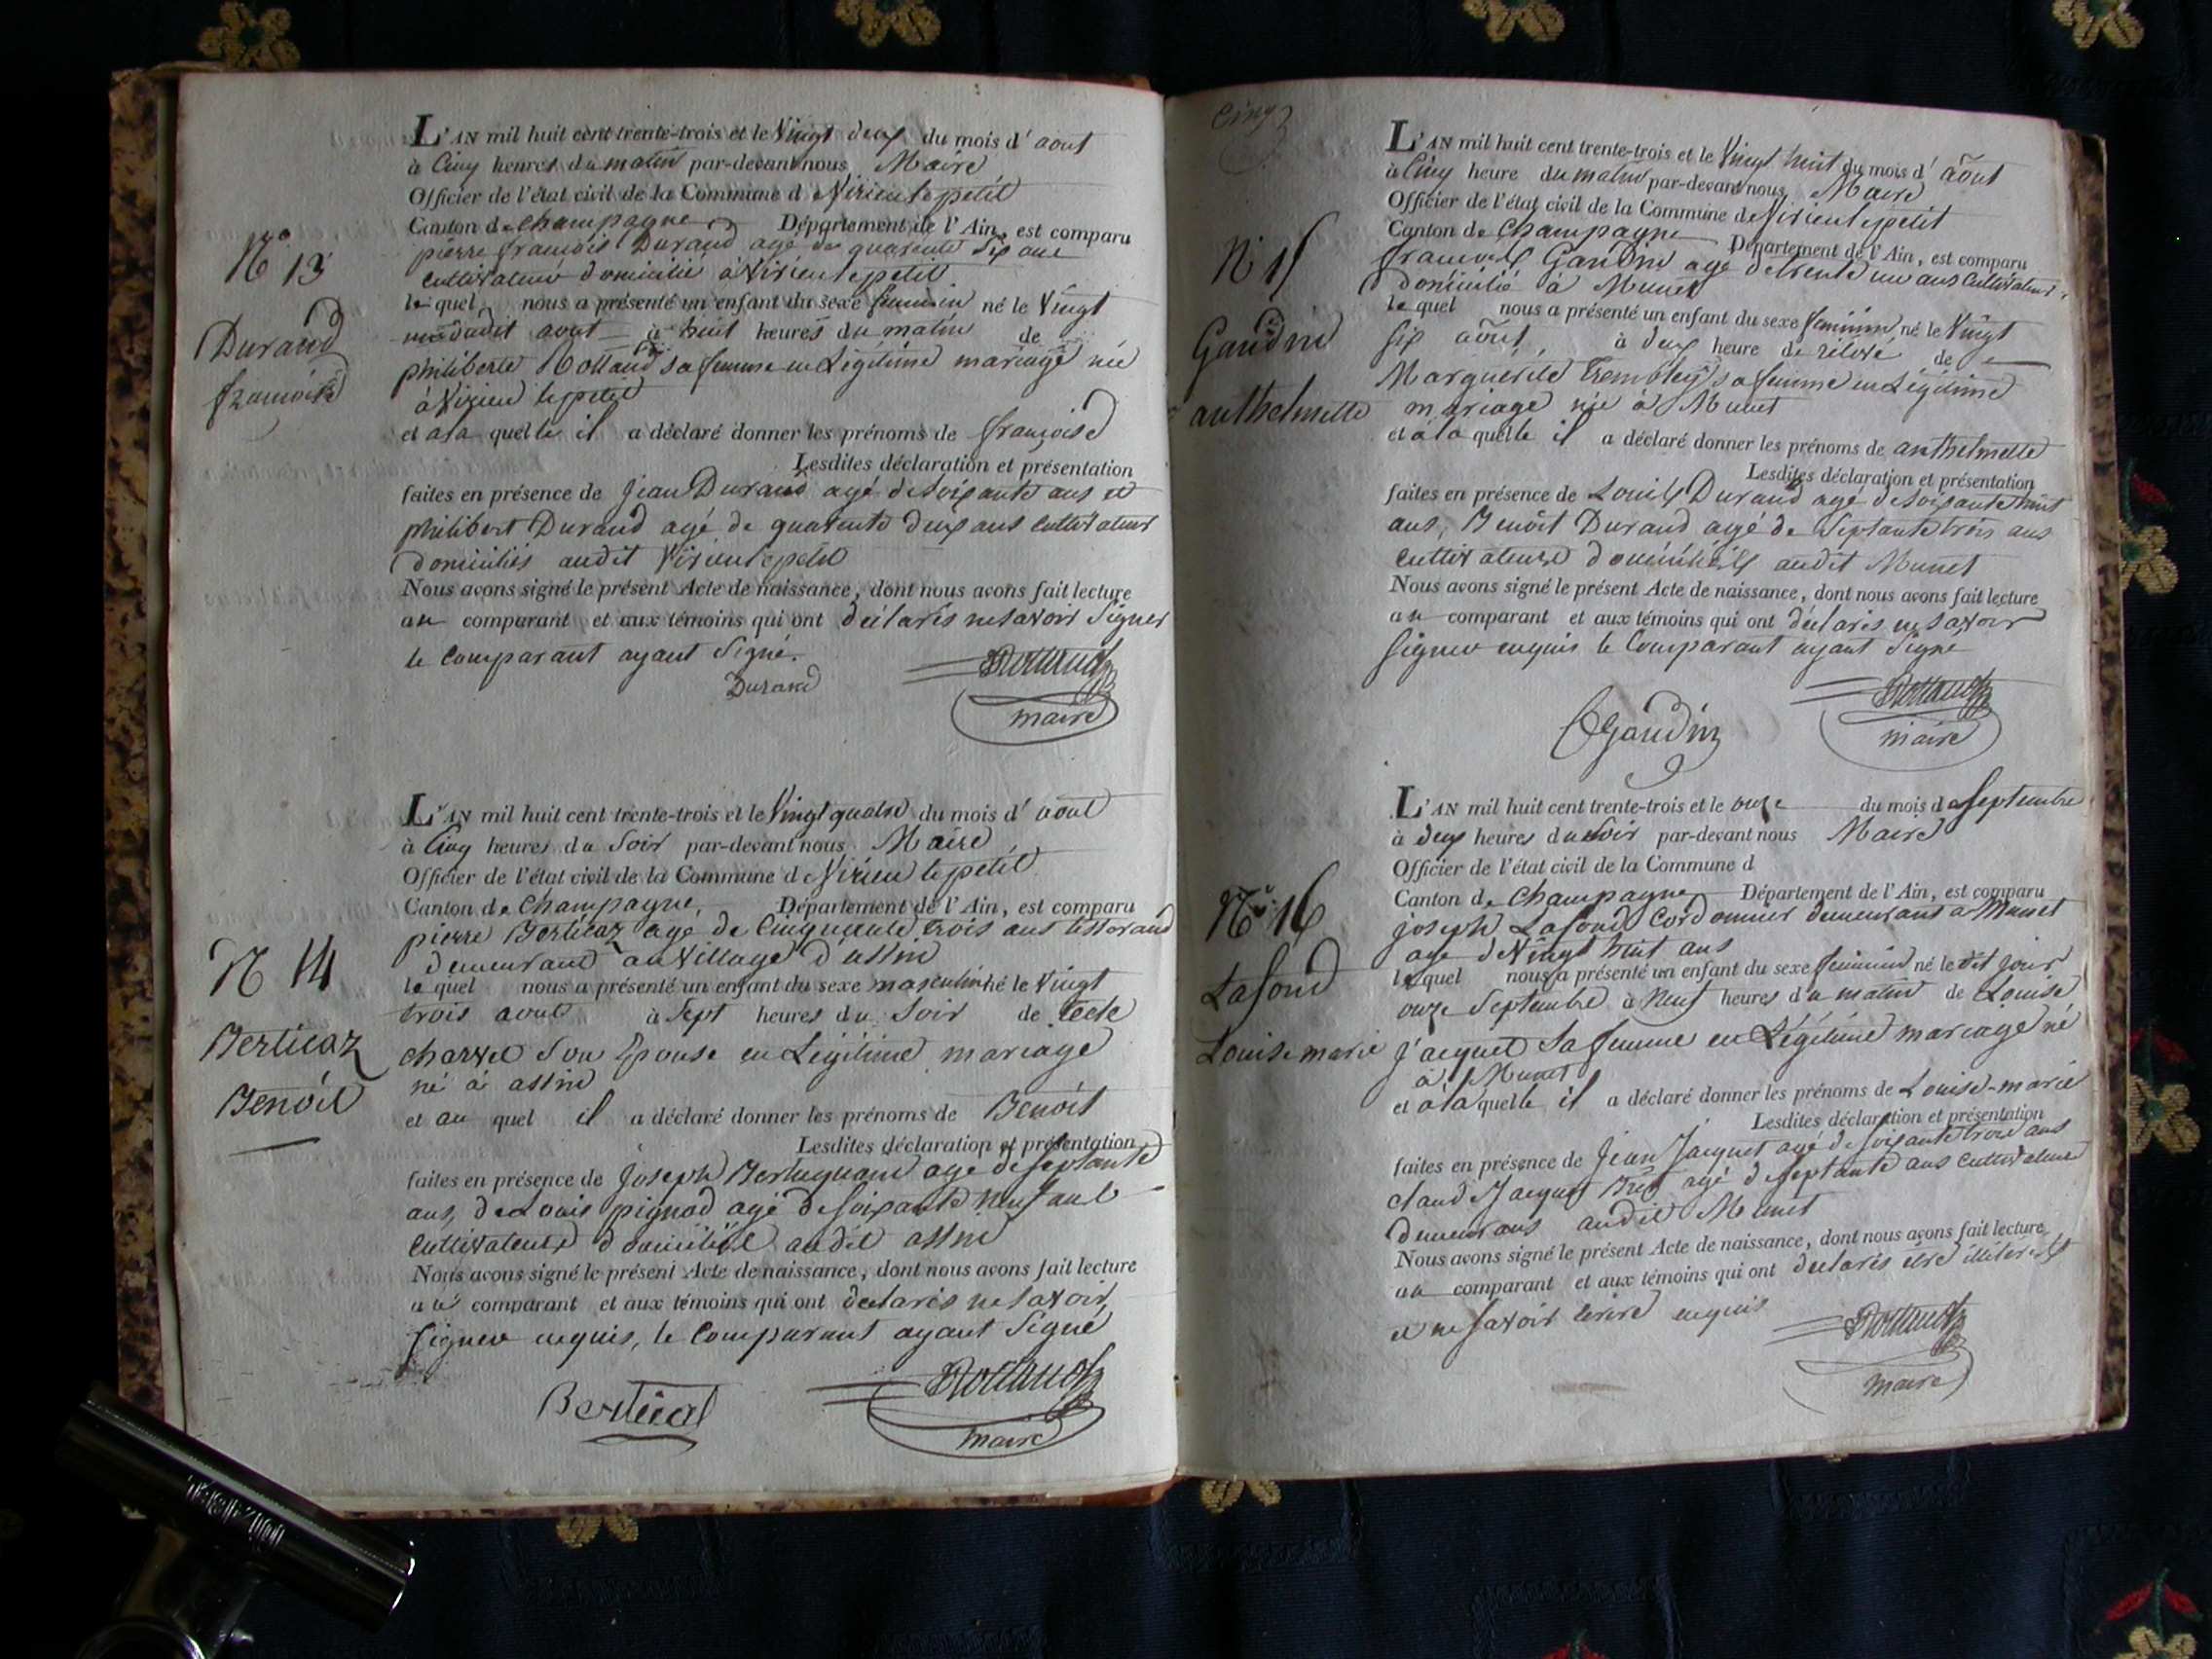 N° 13
Durand
françoise
L'AN mil huit cent trente-trois et le Vingt deux du mois d'aout
à Cinq heures du matin par-devant nous Maire
Officier de l'état civil de la Commune de Virieu le petit
Canton de Champagne Département de l'Ain, est comparu
pierre françois Durand agé de quarente six ans
Cultivateur domicilié à Virieu le petit
le quel nous a présenté un enfant du sexe feminin né le Vingt
dudit aout à huit heures du matin de
philiberte Rolland sa femme en Légitime mariage née
à Virieu le petit
et a la quelle il a déclaré donner les prénoms de françoise
Lesdites déclaration et présentation
faites en présence de Jean Durand agé de soixante ans et
philibert Durand agé de quarente deux ans Cultivateurs
domiciliés audit Virieu le petit
Nous avons signé le présent Acte de naissance, dont nous avons fait lecture
au comparant et aux témoins qui ont déclarés ne savoir Signer
le Comparant ayant Signé.
Durand
maire
N° 14
Berticaz
Benoit
L'AN mil huit cent trente-trois et le Vingt quatre du mois d'aout
à Cinq heures du Soir par-devant nous Maire
Officier de l'état civil de la Commune de Virieu le petit
Canton de Champagne, Département de l'Ain, est comparu
pierre Berticaz agé de Cinquante trois ans tisserand
demeurant au Village d'assin
le quel nous a présenté un enfant du sexe masculin né le Vingt
trois aout à Sept heures du Soir de
charvet son Epouse en Légitime mariage
né à assin
et au quel il a déclaré donner les prénoms de Benoit
Lesdites déclaration et présentation
faites en présence de Joseph agé de septante
ans, de Louis pignod agé de soixante neuf ans
Cultivateurs domiciliés audit assin
Nous avons signé le présent Acte de naissance, dont nous avons fait lecture
au comparant et aux témoins qui ont déclarés ne savoir
signer enquis, le Comparant ayant Signé
maire
Cinq
N° 15
Gaudin
anthelmette
L'AN mil huit cent trente-trois et le Vingt huit du mois d'août
à Cinq heure du matin par-devant nous Maire
Officier de l'état civil de la Commune de Virieu le petit
Canton de Champagne Département de l'Ain, est comparu
Gaudin agé de trente un ans Cultivateur,
domicilié à Munet
le quel nous a présenté un enfant du sexe feminin né le Vingt
six août, à deux heure de relevé de
Marguerite Trembley sa femme en Légitime
mariage née à Munet
et à la quelle il a déclaré donner les prénoms de anthelmette
Lesdites déclaration et présentation
faites en présence de Louis Durand agé de soixante huit
ans, Benoit Durand agé de Septante trois ans
Cultivateurs domiciliés audit Munet
Nous avons signé le présent Acte de naissance, dont nous avons fait lecture
au comparant et aux témoins qui ont déclarés ne savoir
signer enquis le Comparant ayant Signé
Gaudin
maire
N° 16
Lafond
Louise marie
L'AN mil huit cent trente-trois et le onze du mois de Septembre
à deux heures du Soir par-devant nous Maire
Officier de l'état civil de la Commune d
Canton de Champagne, Département de l'Ain, est comparu
joseph Lafond Cordonnier demeurant à Munet
agé de Vingt huit ans
le quel nous a présenté un enfant du sexe feminin né le dit jour
onze Septembre à Neuf heures du matin de Louise
Jacquet sa femme en Légitime mariage né
à Munet
et à la quelle il a déclaré donner les prénoms de Louise-marie
Lesdites déclaration et présentation
faites en présence de Jean Jacquet agé de soixante trois ans
claude Jacquet agé de septante ans Cultivateurs
demeurans audit Munet
Nous avons signé le présent Acte de naissance, dont nous avons fait lecture
au comparant et aux témoins qui ont déclarés être illiterés
et ne savoir écrire enquis
maire